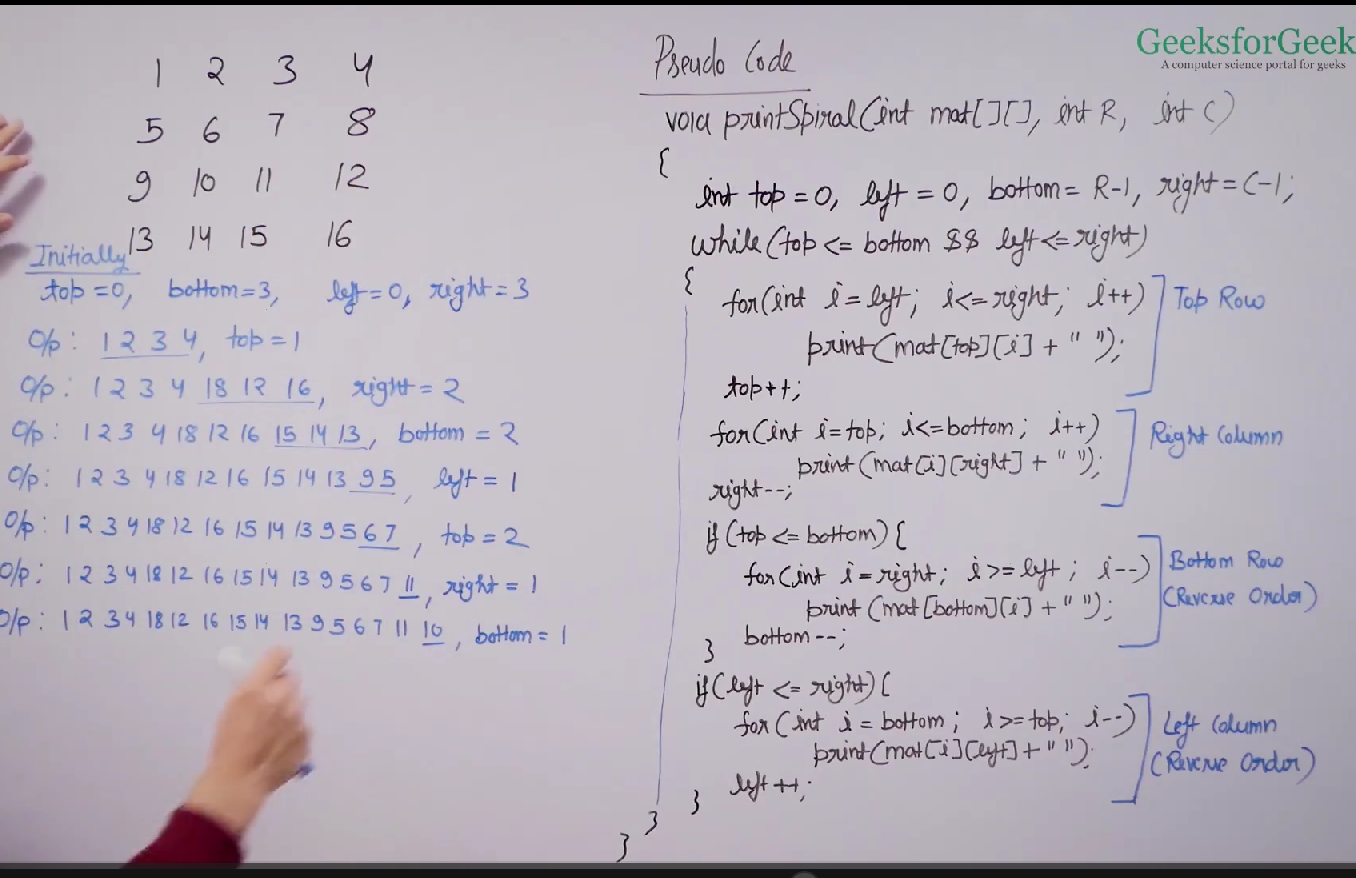 1 2 3 4
5 6 7 8
9 10 11 12
13 14 15 16
Initially
top=0, bottom=3, left=0, right=3
O/p: 1 2 3 4, top=1
O/p: 1 2 3 4 18 12 16, right=2
O/p: 1 2 3 4 18 12 16 15 14 13, bottom=2
O/p: 1 2 3 4 18 12 16 15 14 13 9 5, left=1
O/p: 1 2 3 4 18 12 16 15 14 13 9 5 6 7, top=2
O/p: 1 2 3 4 18 12 16 15 14 13 9 5 6 7 11, right=1
O/p: 1 2 3 4 18 12 16 15 14 13 9 5 6 7 11 10, bottom=1
GeeksforGeek
A computer science portal for geeks
Pseudo Code
void printSpiral(int mat[][], int R, int C)
{
int top=0, left=0, bottom=R-1, right=C-1;
while(top<=bottom $$ left<=right)
{
for(int i=left; i<=right; i++)
print(mat[top][i] + " ");
top++;
Top Row
for(int i=top; i<=bottom; i++)
print(mat[i][right] + " ");
right--;
Right Column
if(top<=bottom){
for(int i=right; i>=left; i--)
print(mat[bottom][i] + " ");
bottom--;
}
Bottom Row
(Reverse Order)
if(left<=right){
for(int i=bottom; i>=top; i--)
print(mat[i][left]+" ");
left++;
}
Left Column
(Reverse Order)
}
}